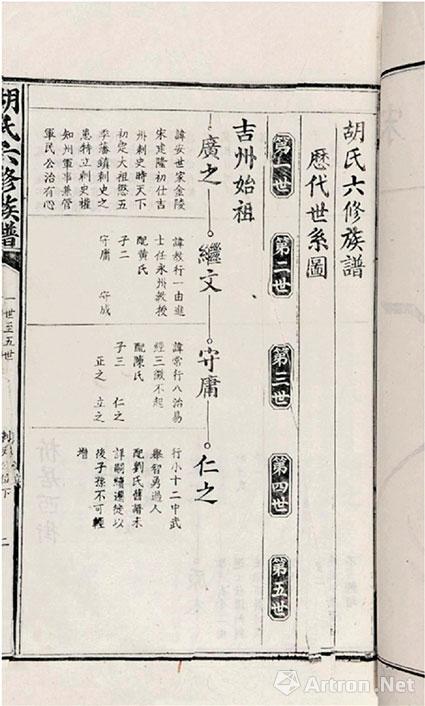 胡氏六修族譜
歷代世系圖
第一世
第二世
第三世
第四世
第五世
吉州始祖
廣之
繼文
守庸
仁之
諱安世家金陵
宋建隆初仕吉
州刺史時天下
初定大祖懲五
季藩鎮刺史之
患特立刺史權
知州軍事兼管
軍民公治有心
諱敎行一由進
士任永州教授
配黃氏
子二
守庸 守成
諱常行八治易
經三徵不起
配陳氏
子三 仁之
正之 立之
行小十二中武
舉智勇過人
配劉氏舊譜未
詳嗣續遷徙以
後子孫不可輕
增
胡氏六修族譜
一世至五世
二
Artron.Net